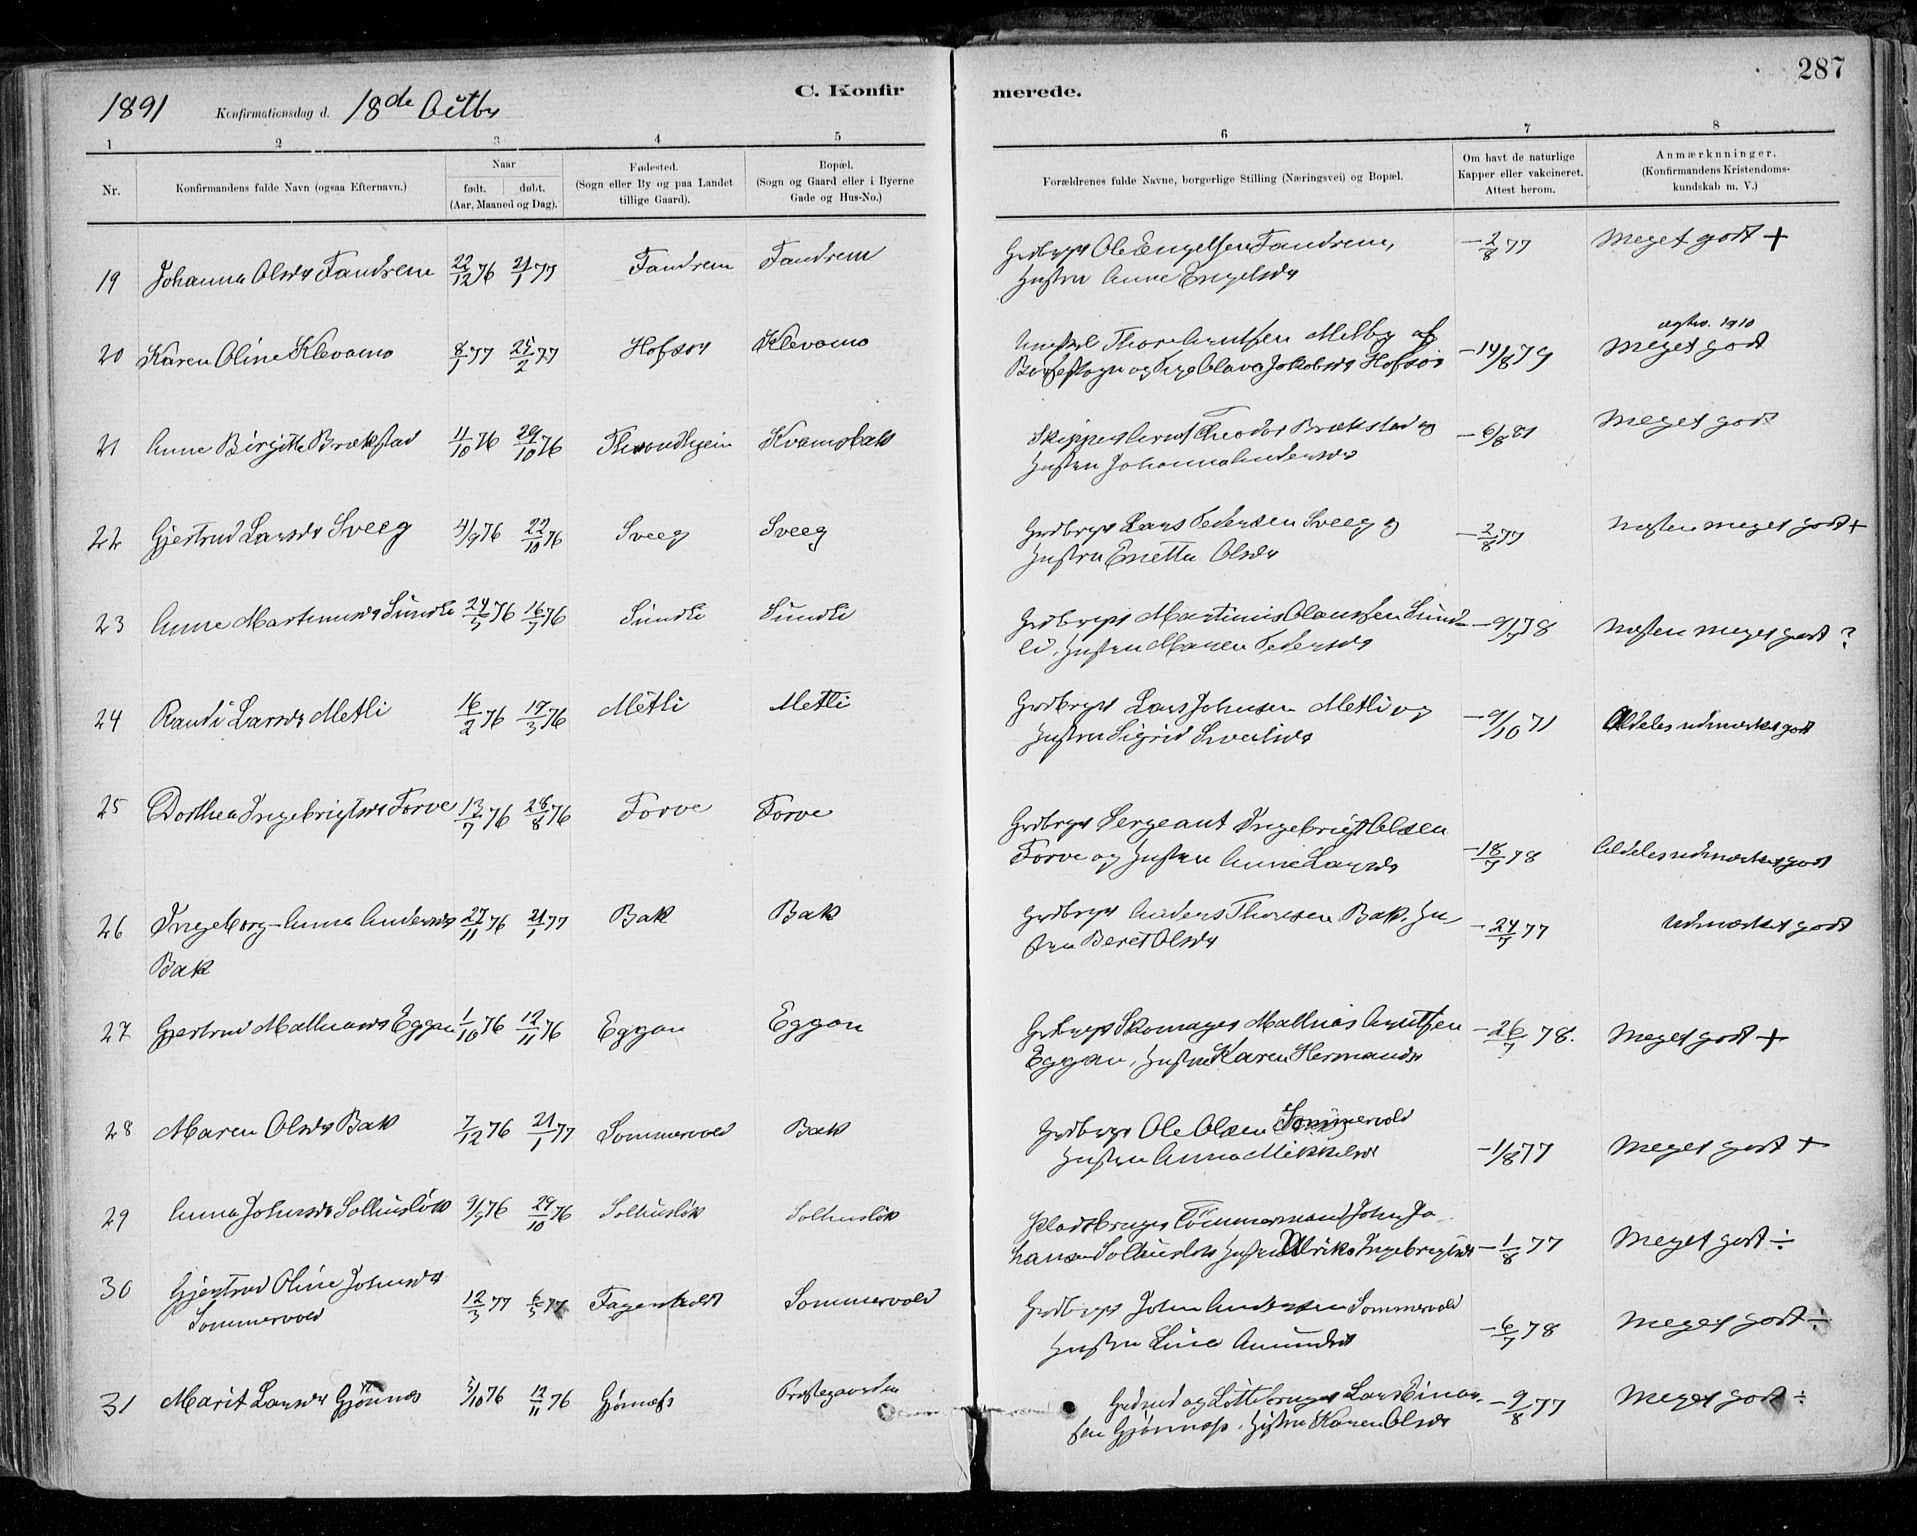 287
C. Konfirmerede.
1891 Konfirmationsdag d. 18de Octbr
1 2 3 4 5 6 7 8
Nr.
Konfirmandens fulde Navn (ogsaa Efternavn.)
Naar
født. døbt.
(Aar, Maaned og Dag).
Fødested.
(Sogn eller By og paa Landet
tillige Gaard).
Bopæl.
(Sogn og Gaard eller i Byerne
Gade og Hus-No.)
Forældrenes fulde Navne, borgerlige Stilling (Næringsvei) og Bopæl.
Om havt de naturlige
Kopper eller vakcineret.
Attest herom.
Anmærkninger.
(Konfirmandens Kristendoms-
kundskab m. V.)
19 Johanna Olsdr Fandrem 22/12 76 21/1 77 Fandrem Fandrem Grdbrgr Ole Engelsen Fandrem, – 2/8 77 Meget godt +
Hustru Anne Engelsdr
20 Karen Oline Klevamo 8/1 77 25/2 77 Hofsør Klevamo Thore Arntsen Melby af – 14/8 79 Meget godt
og Olava Jakobsdr Hofsør
1910
21 Anne Birgitte Brækstad 11/10 76 29/10 76 Throndhjem Kvamsbak Skipper Arnt Theodor Brækstad og – 6/8 81 Meget godt
Hustru Johanna Andersdr
22 Gjertrud Larsdr Sveeg 4/9 76 22/10 76 Sveeg Sveeg Grdbrgr Lars Pedersen Sveeg og – 2/8 77 Næsten meget godt +
Hustru Enetta Olsdr
23 Anne Martinusdr Sundli 24/5 76 16/7 76 Sundli Sundli Grdbrgr Martinus Olaussen Sund- – 9/7 78 Næsten meget godt ?
li, Hustru Maren Pedersdr
24 Randi Larsdr Metli 16/2 76 19/3 76 Metli Metli Grdbrgr Lars Johnsen Metli og – 9/10 71 Aldeles udmærket godt
Hustru Sigrid Sivertsdr
25 Dorthea Ingebrigtsdr Forve 13/7 76 28/8 76 Forve Forve Grdbrgr Sergeant Ingebrigt Olsen
Forve og Hustru Anne Larsdr – 18/7 78 Aldeles udmærket godt
26 Ingeborg-Anna Andersdr 27/11 76 21/1 77 Bak Bak Grdbrgr Anders Thoresen Bak, Hu- – 24/7 77 Udmærket godt
Bak stru Beret Olsdr
27 Gjertrud Mathiasdr Eggan 1/10 76 12/11 76 Eggan Eggan Skomager Mathias Arntsen – 26/7 78. Meget godt +
Eggan, Hustru Karen Hermansdr
28 Maren Olsdr Bak 7/12 76 21/1 77 Sommervold Bak Grdbrgr Ole Olsen Sommervold
Hustru Anna Mikkelsdr – 1/8 77 Meget godt +
29 Anna Johnsdr Solhusløk 9/9 76 29/10 76 Solhusløk Solhusløk Pladsbruger Tømmermand John Jo-
hansen Solhusløk Hustru Ulrikke Ingebrigtsdr – 1/8 77 Meget godt ÷
30 Gjertrud Oline Johnsdr 12/3 77 6/5 77 Sommervold Grdbrgr John Andersen Sommervold – 6/7 78 Meget godt ÷
Sommervold Hustru Line Amundsdr
31 Marit Larsdr Gjønnes 5/10 76 12/11 76 Gjønnæss Præstegaarden Lars Einar- – 9/8 77 Meget godt ÷
sen Gjønnæss, Hustru Karen Olsdr